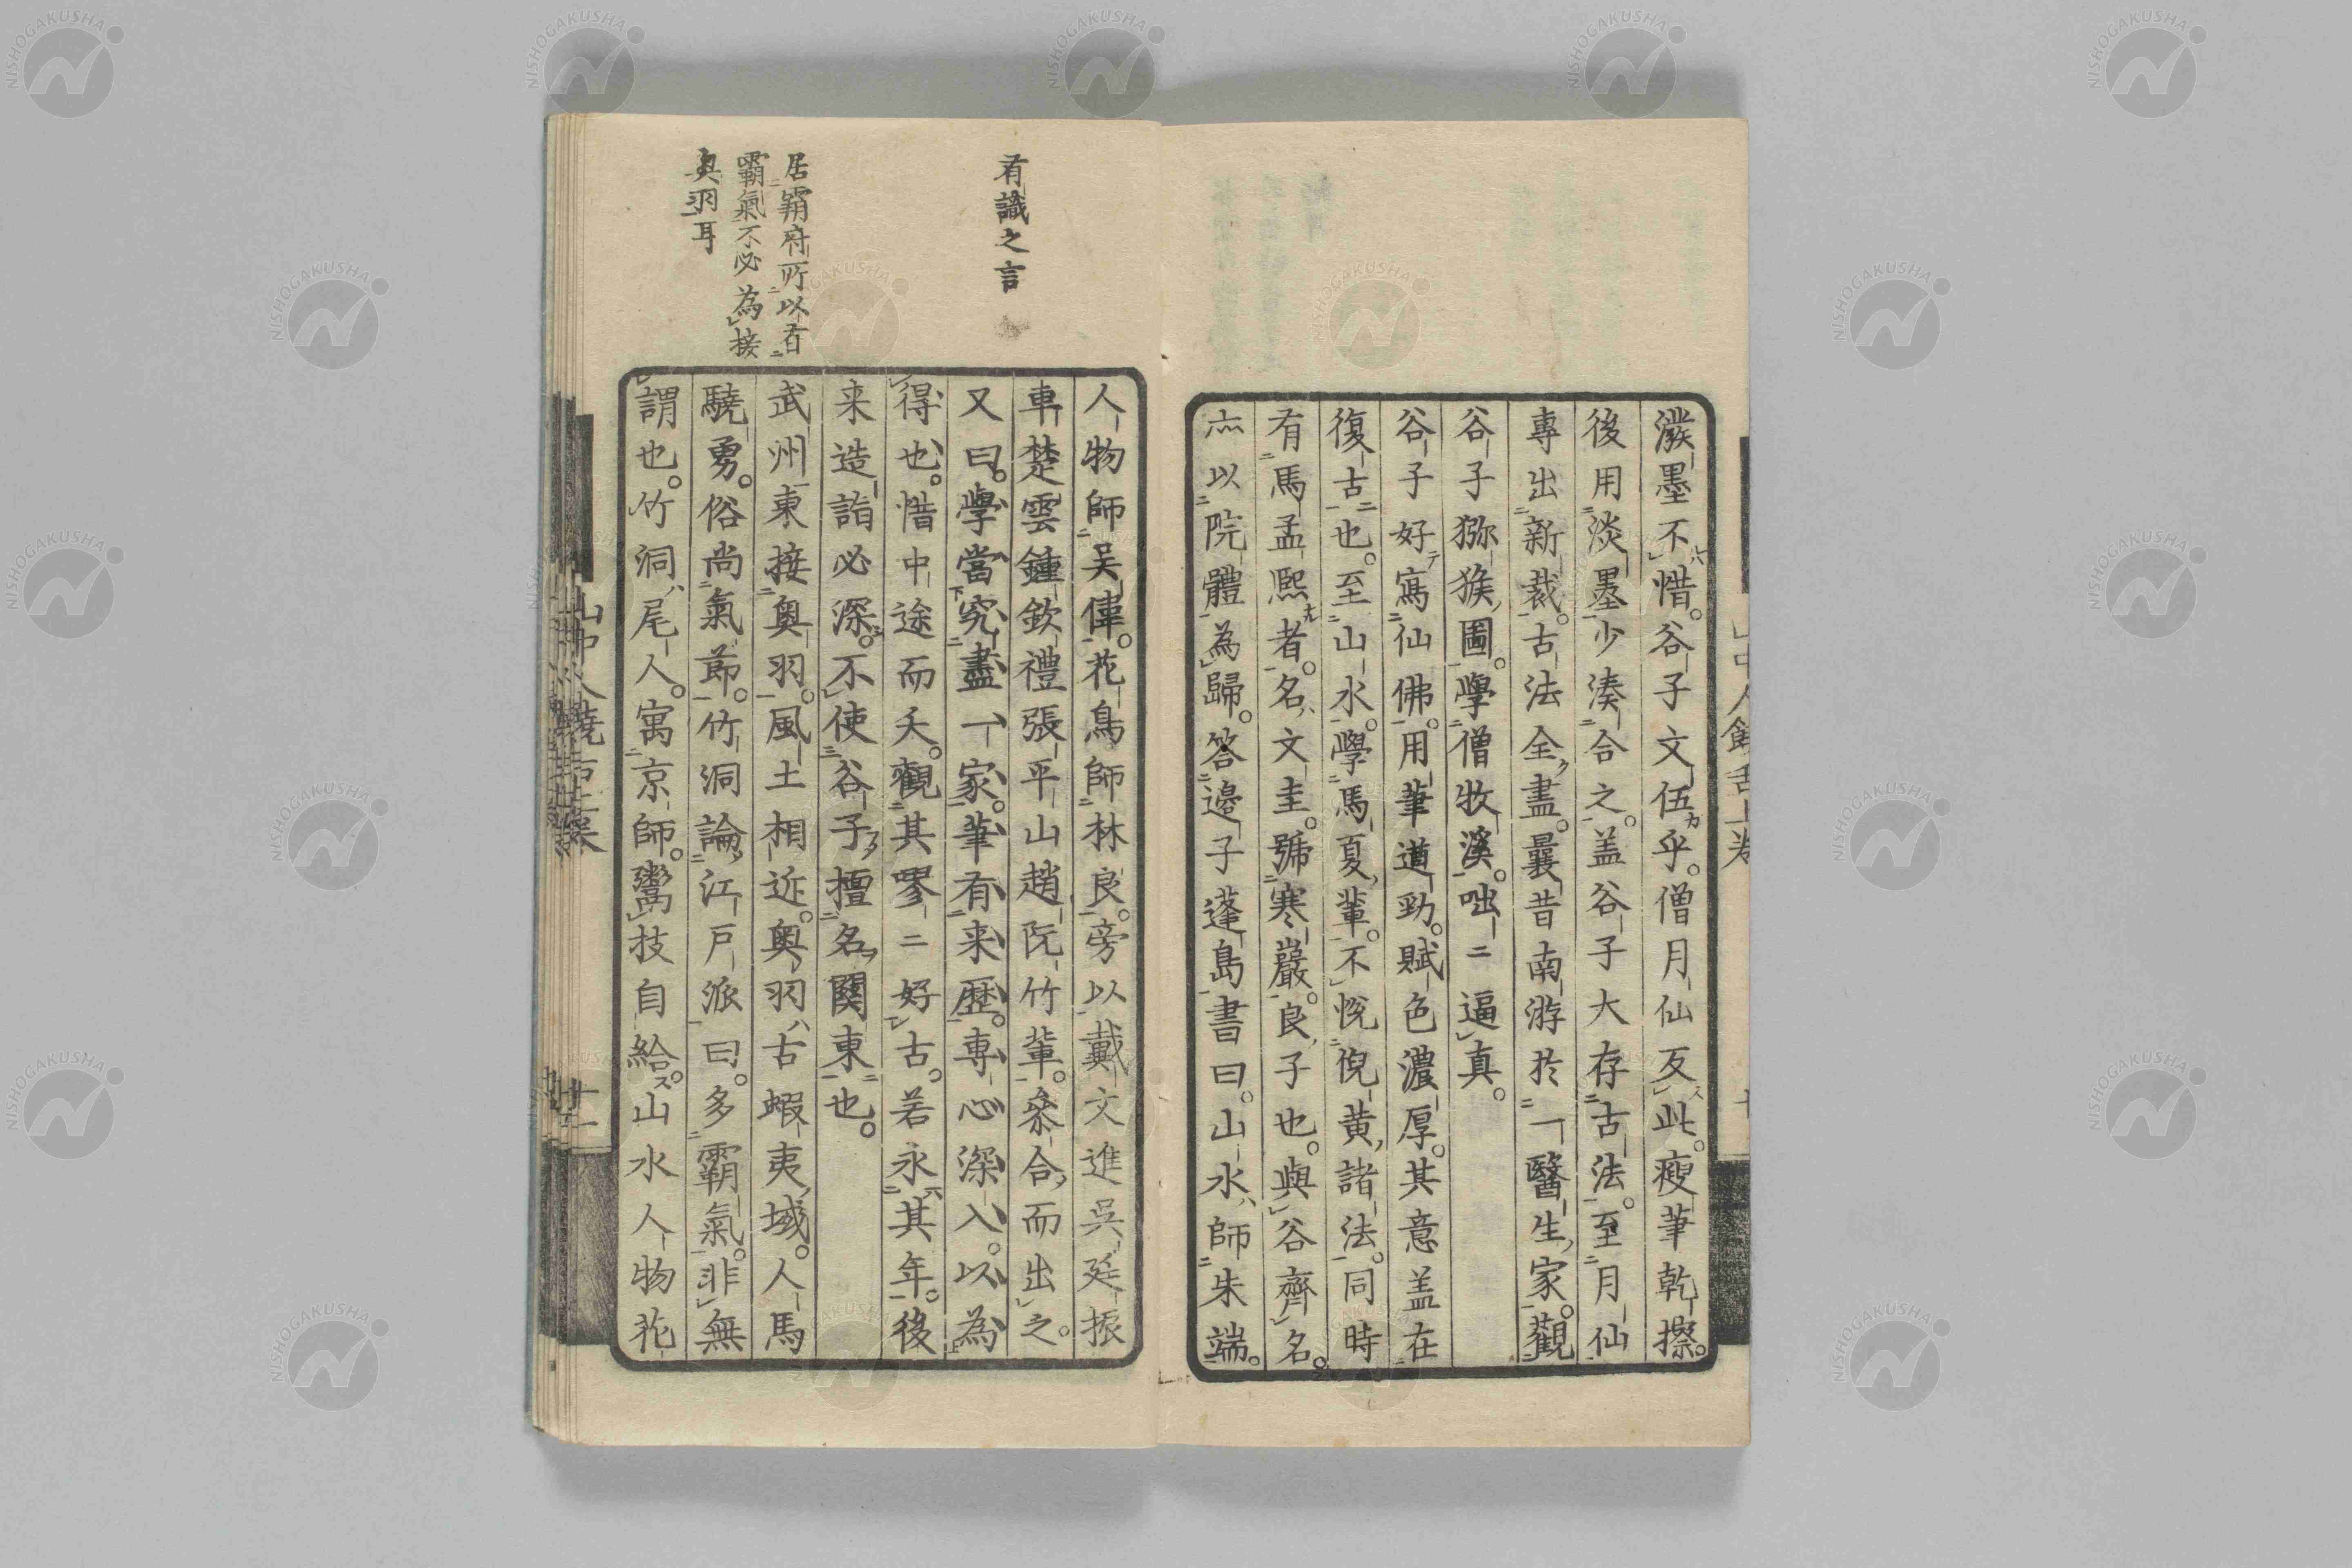 潑墨不惜。谷子文伍乎。僧月仙反此。瘦筆乾擦。
後用淡墨少湊合之。盖谷子大存古法。至月仙
專出新裁。古法全盡。曩昔南游於一醫生家。觀
谷子猕猴圖。學僧牧溪。咄二逼真。
谷子好寫仙佛。用筆遒勁。賦色濃厚。其意盖在
復古也。至山水。學馬夏輩。不悅倪黄諸法。同時
有馬孟熙者。名文圭。號寒巖。良子也。與谷齊名。
亦以院體為歸。答邊子蓬島書曰。山水師朱端。
有識之言
居霸府所以有
霸氣不必為接
奥羽耳
人物師吴偉。花鳥師林良。旁以戴文進吳廷振
車楚雲鍾欽禮張平山趙阮竹輩。叅合而出之。
又曰。學當究盡一家。筆有来歴。專心深入。以為
得也。惜中途而夭。觀其嘐二好古。若永其年。後
来造詣必深。不使谷子擅名関東也。
武州東接奥羽。風土相近。奥羽古蝦夷域。人馬
驍勇。俗尚氣節。竹洞論江戸派曰。多霸氣。非無
謂也。竹洞尾人。寓京師。鬻技自給。山水人物花